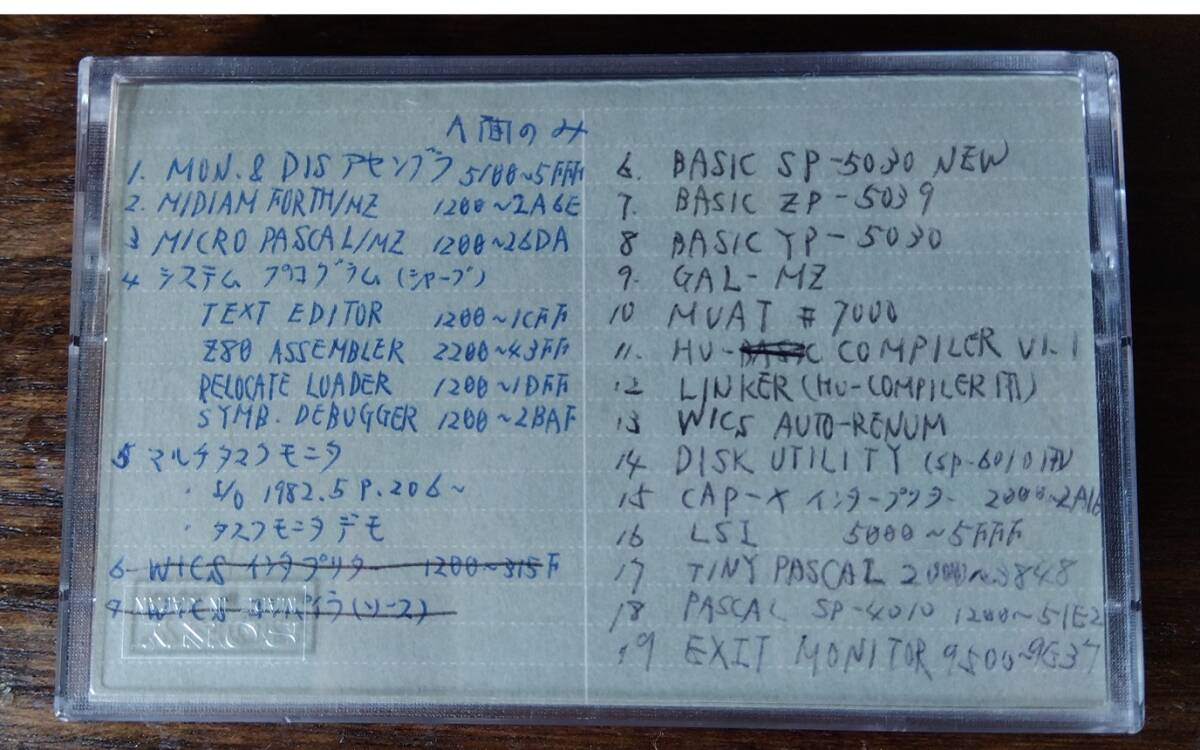 A面のみ
1. MON. & DIS アセンブラ 5100~5FFF
2. MIDIAM FORTH/MZ 1200~2A6E
3 MICRO PASCAL/MZ 1200~26DA
4 システム プログラム (シャープ)
TEXT EDITOR 1200~1CFF
Z80 ASSEMBLER 2200~43FF
RELOCATE LOADER 1200~1DFF
SYMB. DEBUGGER 1200~2BAF
5 マルチタスクモニタ
・ I/O 1982.5 P.206~
・ タスクモニタデモ
6 WICS インタプリター 1200~315F
7 WICS コンパイラ(ソース)
SONY
6. BASIC SP-5030 NEW
7. BASIC ZP-5039
8 BASIC YP-5030
9. GAL-MZ
10 MVAT # 7000
11. HU- COMPILER V1.1
12 LINKER (HU-COMPILER用)
13 WICS AUTO-RENUM
14 DISK UTILITY (SP-6010用)
15 CAP-X インタープリター 2000~2A16
16 LSI 5000~5FFF
17 TINY PASCAL 2000~3848
18 PASCAL SP-4010 1200~51E2
19 EXIT MONITOR 9500~9E37